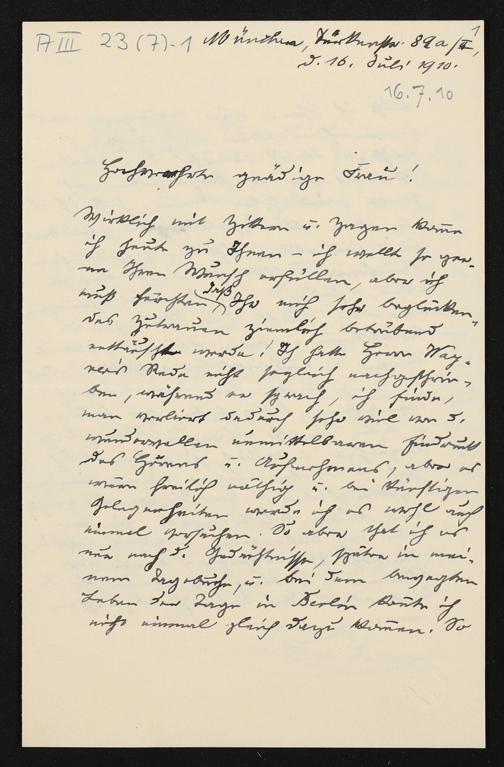 A III 23 (7)-1 München, Türkenstr. 89a/II,
1
d. 16. Juli 1910.
16.7.10
Hochverehrte gnädige Frau!
Wirklich mit Zittern u. Zagen komme
ich heute zu Ihnen – ich wollte so ger-
ne Ihren Wunsch erfüllen, aber ich
muß fürchten, daß Ihr mich sehr beglücken-
des Zutrauen ziemlich betrübend
enttäuscht werde! Ich hatte Herrn
Rede nicht sogleich nachgeschrie-
ben, während er sprach, ich finde,
man verliert dadurch sehr viel von d.
wundervollen unmittelbaren Eindruck
des Hörens u. Aufnehmens, aber es
wäre freilich nöthig u. bei künftigen
Gelegenheiten werde ich es wohl auch
einmal versuchen. So aber that ich es
nur nach d. Gedächtnisse, später in mei-
nem Tagebuche, u. bei dem bewegten
Leben der Tage in Berlin konnte ich
nicht einmal gleich dazu kommen. So